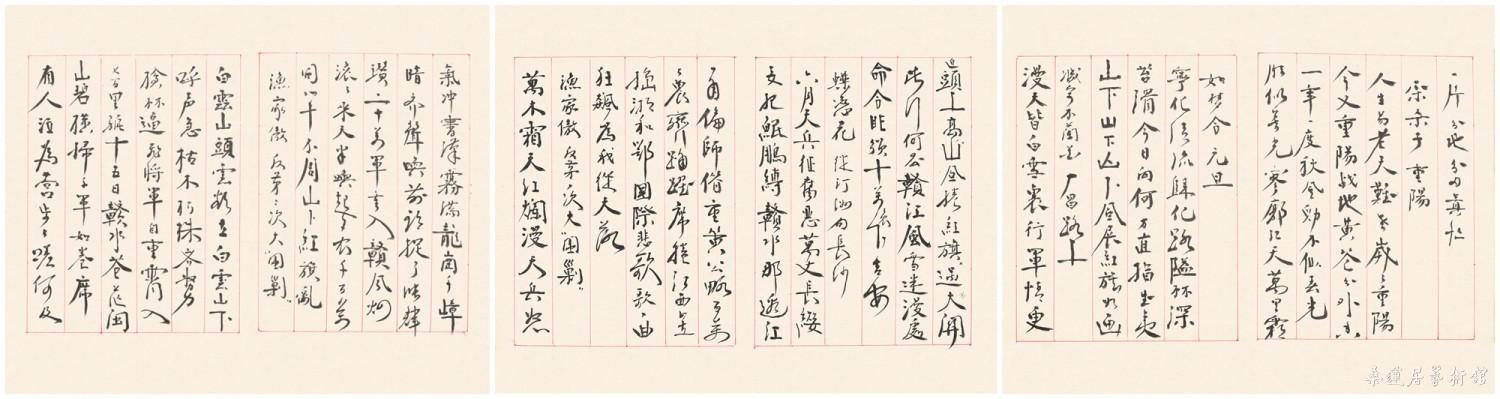 一片分地分田真忙
采桑子 重陽
人生易老天難老歲〻重陽
今又重陽战地黄花分外香
一年一度秋風勁不似春光
勝似春光寥廓江天萬里霜
如梦令 元旦
寧化清流歸化路隘林深
苔滑今日向何方直指武夷
山下山下山下風展紅旗如画
減字木蘭花 广昌路上
漫天皆白雪裏行軍情更
迫頭上高山風捲紅旗過大關
此行何去贛江風雪迷漫處
命令昨頒十萬下吉安
蝶恋花 從汀州向長沙
六月天兵征腐惡萬丈長纓
要把鯤鵬縛贛水那邊紅
一角偏師借重黄公略百萬
工農齊踴躍席捲江西直
搗湖和鄂國際悲歌歌一曲
狂飆為我從天落
漁家傲 反第一次大圍剿
萬木霜天紅爛漫天兵怒
氣沖霄漢霧滿龍岡千嶂
暗齊聲喚前頭捉了張輝
瓚二十萬軍重入贛風烟
滾〻來天半喚起工農千百萬
同心干不周山下紅旗亂
漁家傲 反第二次大圍剿
白雲山頭雲欲立白雲山下
呼声急枯木朽株齊努力
搶林逼飛將軍自重霄入
七百里驅十五日贛水蒼茫閩
山碧橫掃千軍如卷席
有人泣為營步〻嗟何及
桑蓮居藝術館